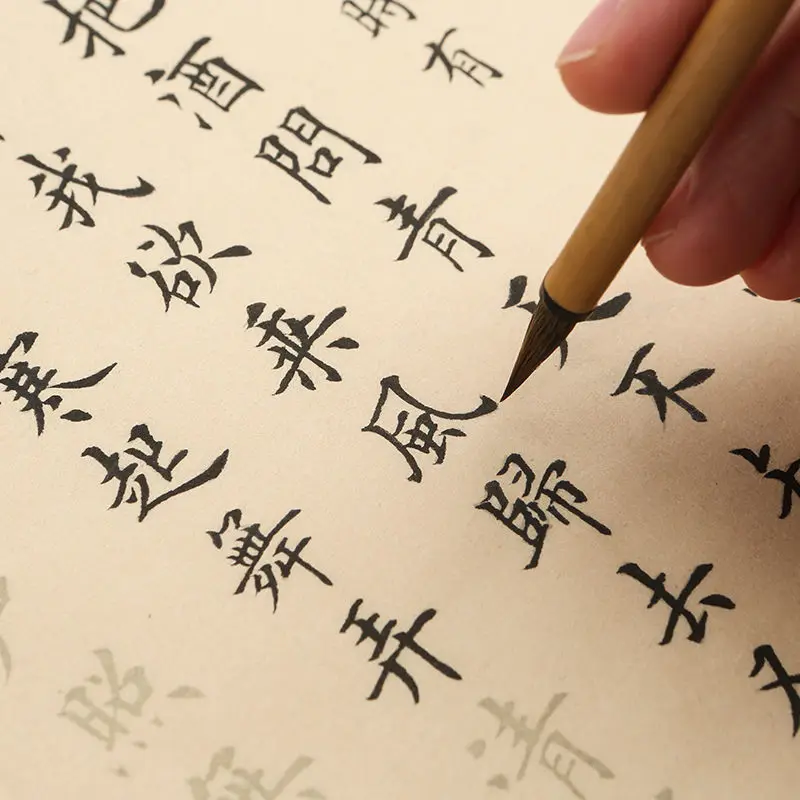 時有
把酒問青天不
我欲乘風歸去又
寒起舞弄清
照